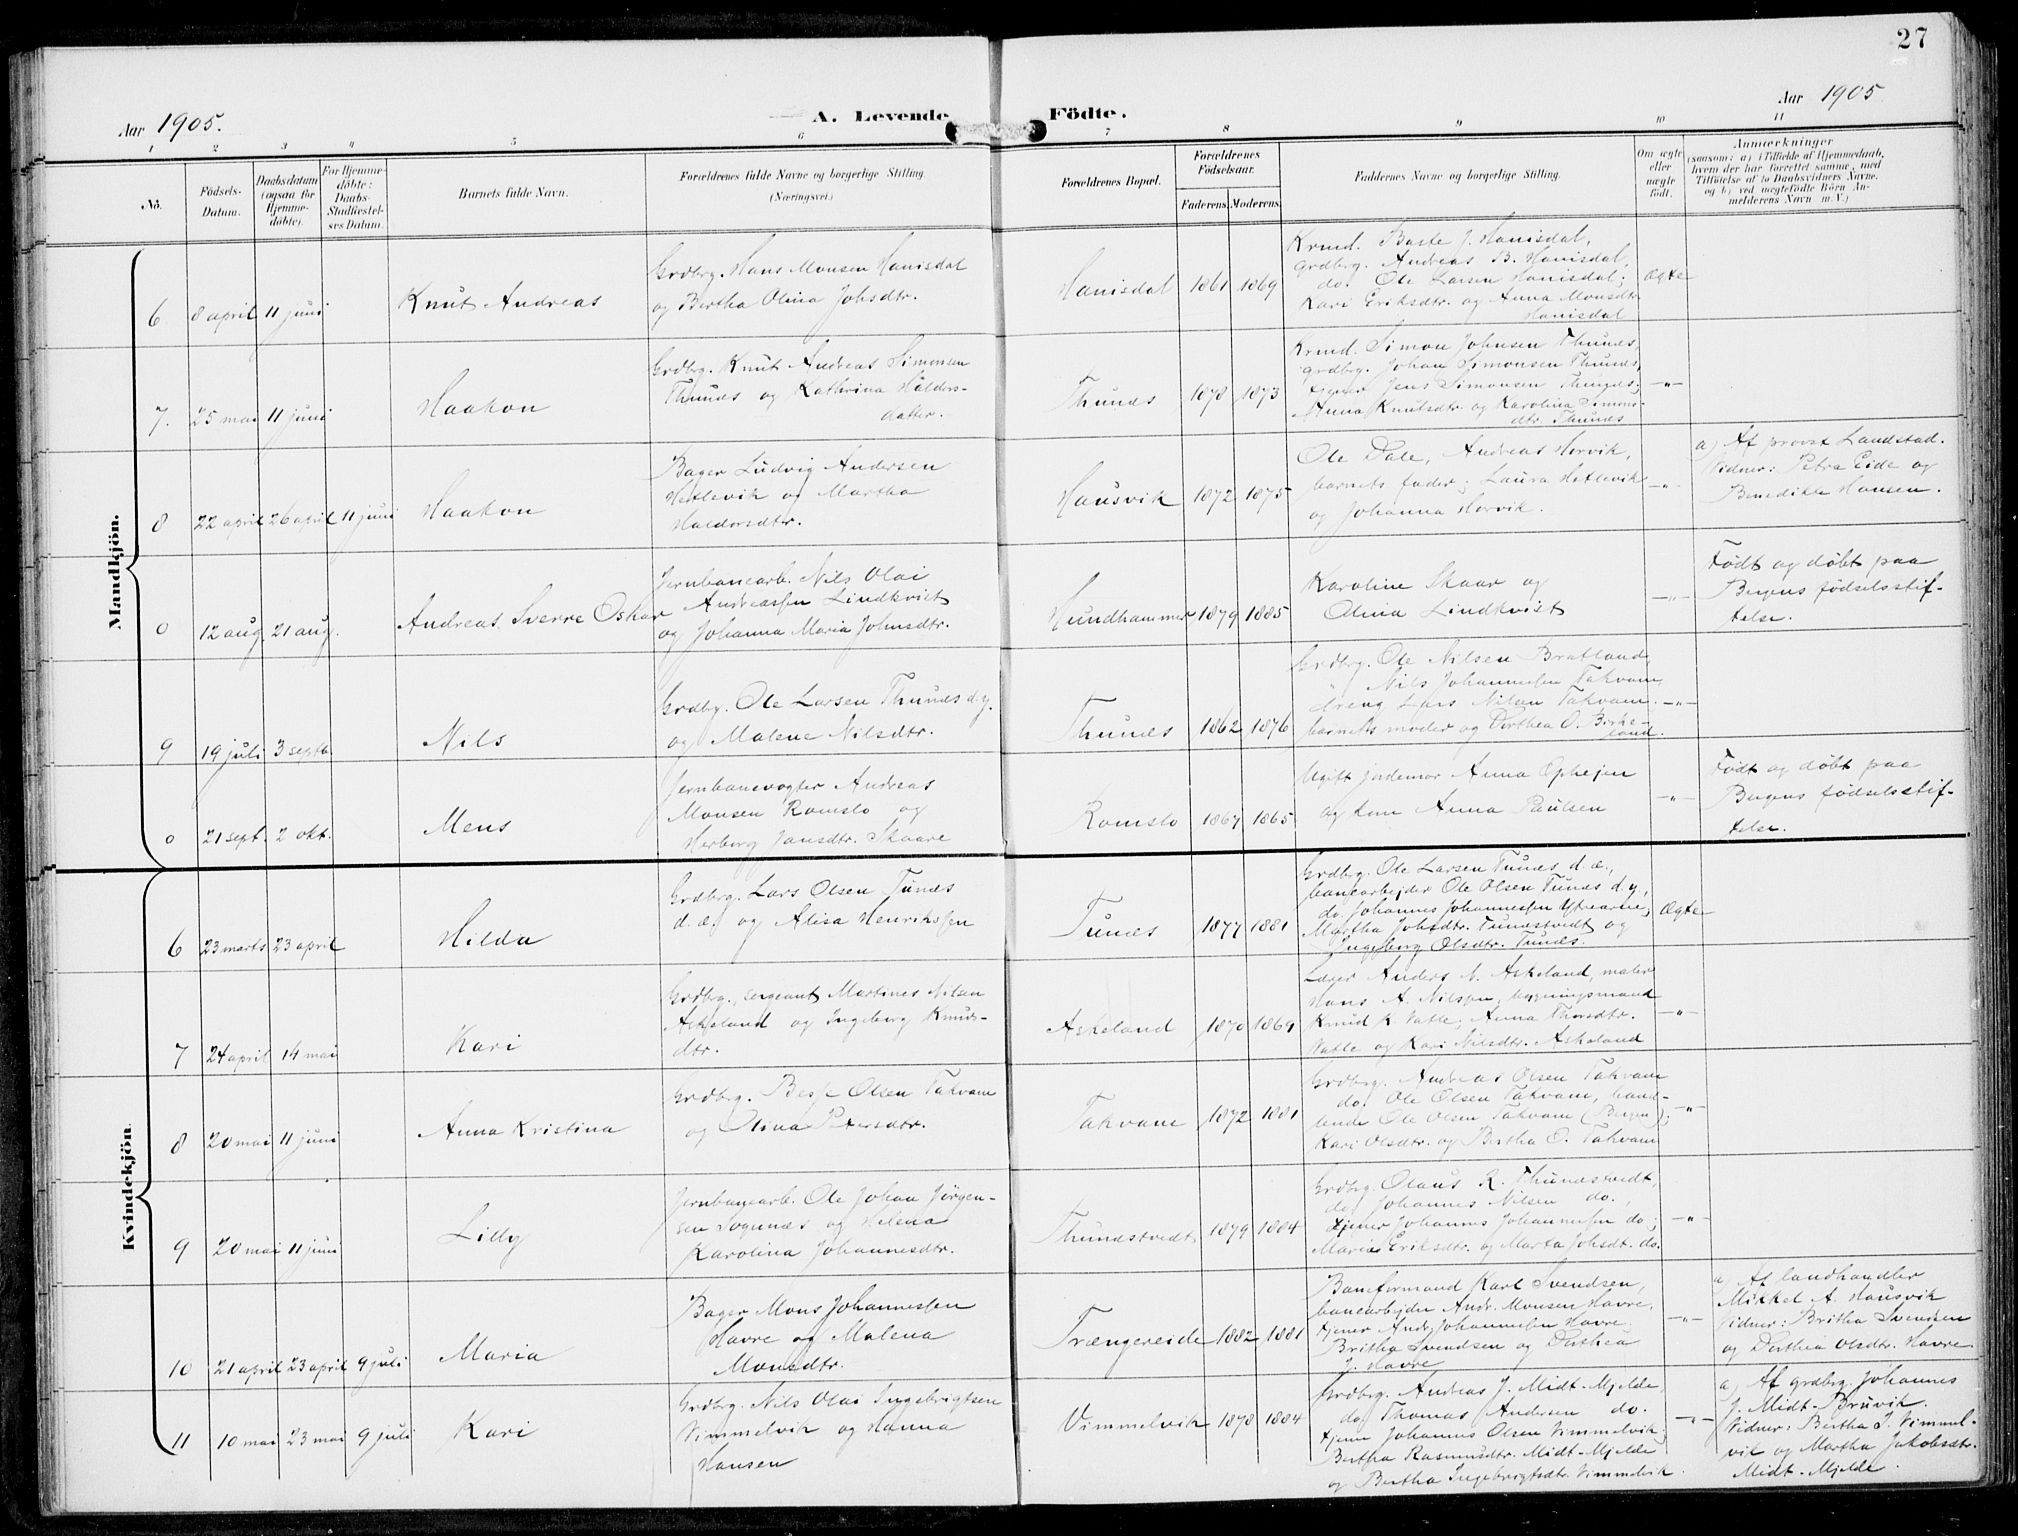 27
Aar 1905.
A. Levende Födte.
Aar 1905
1 2 3 4 5 6 7 8 9 10 11
No.
Födsels-
Datum.
Daabsdatum
(ogsaa for
Hjemme-
döbte).
For Hjemme-
döbte:
Daabs-
Stadfæstel-
ses Datum.
Barnets fulde Navn.
Forældrenes fulde Navne og borgerlige Stilling.
(Næringsvei.)
Forældrenes Bopæl.
Forældrenes
Födselsaar.
Faderens. Moderens.
Faddernes Navne og borgerlige Stilling.
Om ægte
eller
uægte
födt.
Anmærkninger
(saasom: a) i Tilfælde af Hjemmedaab,
hvem der har forrettet samme, med
Tilföielse af to Daabsvidners Navne,
og b) ved uegtefödte Börn An-
melderens Navn m. V.)
Mandkjön.
6 8 april 11 juni
Knut Andreas
Grdbrg. Hans Monsen Hanisdal
og Bertha Olina Johsdtr.
Hanisdal 1861 1869
Krmd. Baste J. Hanisdal,
grdbrg. Andreas B. Hanisdal,
do. Ole Larsen Hanisdal;
Kari Eriksdtr. og Anna Monsdtr.
Hanisdal
Ægte
7. 25 mai 11 juni
Haakon
Grdbrg. Knut Andreas Simonsen
Thunes og Kathrina Haldors-
datter.
Thunes 1878 1873
Krmd. Simon Johnsen Thunes,
grdbrg. Johan Simonsen Thunes,
tjener Jens Simonsen Thunes;
Anna Knutsdtr. og Karolina Simons-
dtr. Thunes
-"-
8 22 april 26 april 11 juni
Haakon
Bager Ludvig Andersen
Hetlevik og Martha
Haldorsdtr.
Hausvik 1872 1875
Ole Dale, Andreas Horvik,
barnets fader; Laura Hetlevik
og Johanna Horvik.
-"-
a) Af provst Landstad.
Vidner: Petra Eide og
Benedikte Hansen.
0 12 aug. 21 aug.
Andreas Sverre Oskar
Jernbanearb. Nils Olai
Andreassen Lindkvist
og Johanna Maria Johnsdtr.
Hundhammer 1879 1885
Karoline Skaar og
Olina Lindkvist
-"-
Født og døbt paa
Bergens fødselsstif-
telse.
9 19 juli 3 septb.
Nils
Grdbrg. Ole Larsen Thunes d.y.
og Malene Nilsdtr.
Thunes 1862 1876
Grdbrg. Ole Nilsen Bratland,
" Nils Johannessen Takvam,
dreng Lars Nilsen Takvam.
barnets moder og Dorthea O. Birke-
land.
-"-
0 21 sept. 2 okt.
Mens
Jernbanevogter Andreas
Monsen Romslo og
Herborg Jansdtr. Skaare
Romslo 1867 1865
Ugift jordemor Anna Ophejen
og tem Anna Paulsen
-"-
Født og døbt paa
Bergens fødselsstif-
telse.
Kvindekjön.
6 23 marts 23 april
Hilda
Grdbrg. Lars Olsen Tunes
d.æ. og Alisa Henriksen
Tunes 1877 1881
Grdbrg. Ole Larsen Tunes d.æ.,
banearbejder Ole Olsen Tunes d.y,
do. Johannes Johannessen Ytrearne;
Martha Johsdtr. Tunestvedt og
Ingeborg Olsdtr. Tunes.
Ægte
7 24 april 14 mai
Kari
Grdbrg., sergeant Martines Nilsen
Askeland og Ingeborg Knuds-
dtr.
Askeland 1870 1869
Lærer Anders N. Askeland, maler
Hans A. Nilsen, bygningsmand
Knud K Vatle; Anna Thorsdtr.
Vatle og Kari Nilsdtr. Askeland
-"-
8 20 mai 11 juni
Anna Kristina
Grdbrg. Besse Olsen Takvam
og Olina Petersdtr.
Takvam 1872 1881
Grdbrg. Andreas Olsen Takvam
do. Ole Olsen Takvam, hand-
lende Ole Olsen Takvam (Bergen);
Kari Olsdtr. og Bertha O. Takvam
-"-
9 20 mai 11 juni
Lilly
Jernbanearb. Ole Johan Jørgen-
sen Sognnæs og Helena
Karolina Johannesdtr.
Thunestvedt 1879 1884
Grdbrg. Olaus R. Thunestvedt,
do. Johannes Nilsen do.,
tjener Johannes Johannessen do;
Maria Eriksdtr. og Marta Johsdt. do.
-"-
10 21 april 23 april 9 juli
Maria
Bager Mons Johannessen
Havre og Malena
Monsdtr.
Trængereide 1882 1881
Baneformand Karl Svendsen,
banearbejder Andr. Monsen Havre,
tjener Andr. Johannessen Havre;
Britha Svendsen og Dorthea
J. Havre
-"-
a) Af landhandler
Mikkel A. Hausvik
Vidner: Britha Svendsen
og Dorthea Olsdtr. Havre
11 10 mai 23 mai 9 juli
Kari
Grdbrg. Nils Olai Ingebrigtsen
Vimmelvik og Hanna
Hansen
Vimmelvik 1878 1884
Grdbrg. Andreas J. Midt-Mjelde,
do. Thomas Andersen do.
tjener Johannes Olsen Vimmelvik;
Bertha Rasmusdtr. Midt-Mjelde
og Bertha Ingebrigtsdtr. Vimmelvik.
-"-
a) Af grdbrg. Johannes
J. Midt-Bruvik.
Vidner: Bertha I. Vimmel-
vik og Martha Jakobsdtr.
Midt-Mjelde.